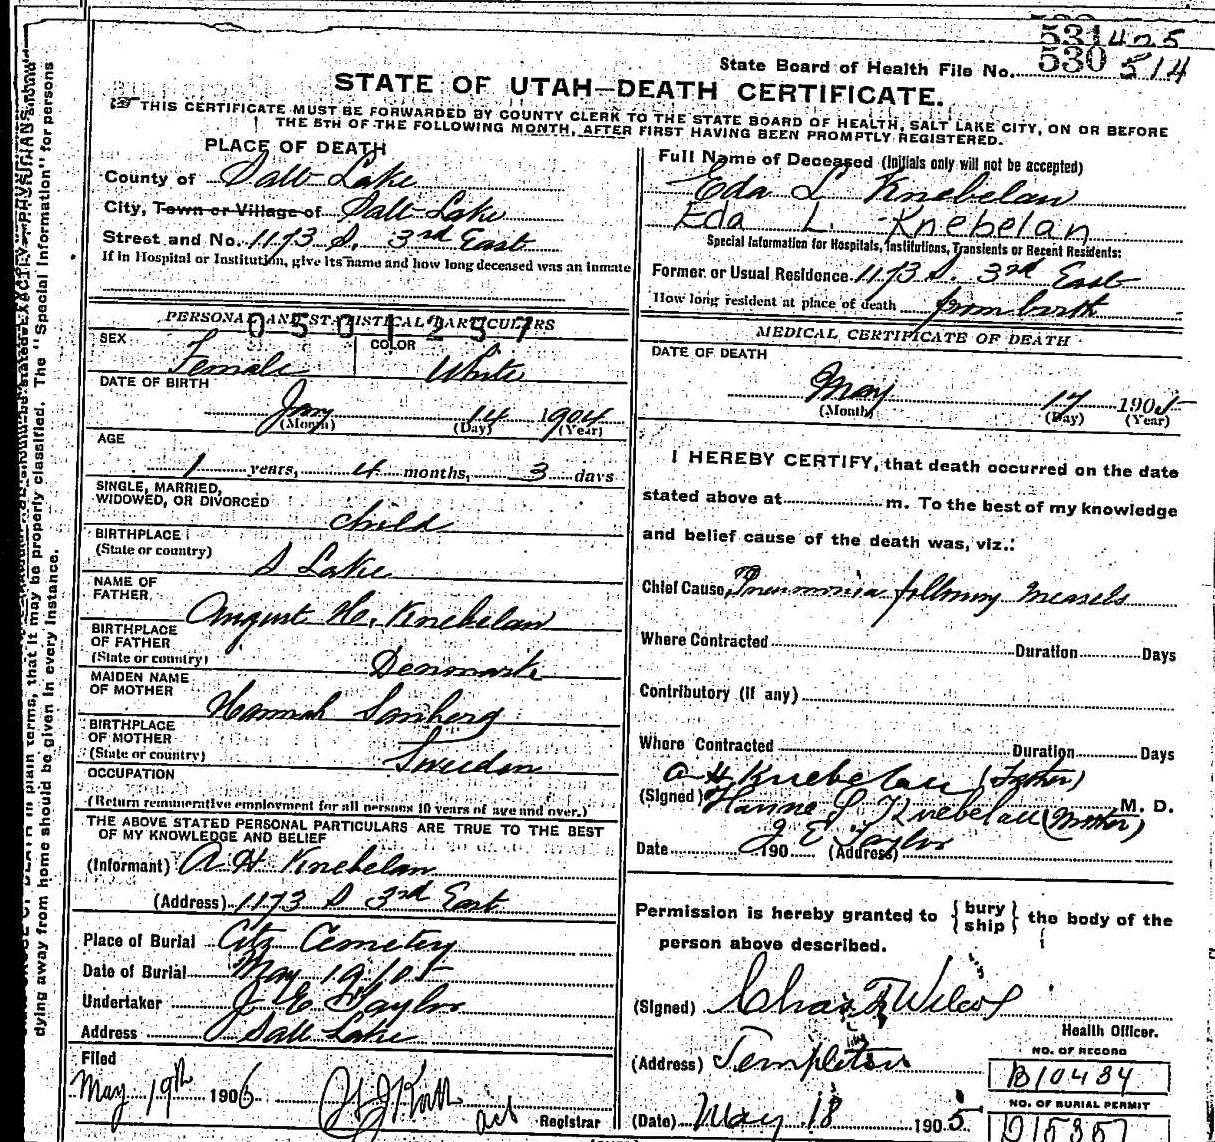 531 425
State Board of Health File No. 530 514
STATE OF UTAH—DEATH CERTIFICATE.
THIS CERTIFICATE MUST BE FORWARDED BY COUNTY CLERK TO THE STATE BOARD OF HEALTH, SALT LAKE CITY, ON OR BEFORE
THE 5TH OF THE FOLLOWING MONTH, AFTER FIRST HAVING BEEN PROMPTLY REGISTERED.
PLACE OF DEATH
County of Salt Lake
City, Town or Village of Salt Lake
Street and No. 1173 S. 3rd East
If in Hospital or Institution, give its name and how long deceased was an inmate
PERSONAL AND STATISTICAL PARTICULARS
0501257
SEX
Female
COLOR
White
DATE OF BIRTH
Jany 14 1904
(Month) (Day) (Year)
AGE
1 years, 4 months, 3 days
SINGLE, MARRIED,
WIDOWED, OR DIVORCED
child
BIRTHPLACE
(State or country)
S Lake
NAME OF
FATHER
August H. Knebelau
BIRTHPLACE
OF FATHER
(State or country)
Denmark
MAIDEN NAME
OF MOTHER
Hannah Sanberg
BIRTHPLACE
OF MOTHER
(State or country)
Sweden
OCCUPATION
(Return remunerative employment for all persons 10 years of age and over.)
THE ABOVE STATED PERSONAL PARTICULARS ARE TRUE TO THE BEST
OF MY KNOWLEDGE AND BELIEF
(Informant) A H Knebelau
(Address) 1173 S 3rd East
Place of Burial City Cemetery
Date of Burial May 19 105
Undertaker J E Taylor
Address Salt Lake
Filed
May 19th 1906
Registrar
Full Name of Deceased (Initials only will not be accepted)
Eda L Knebelau
Eda L. Knebelan
Special Information for Hospitals, Institutions, Transients or Recent Residents:
Former or Usual Residence 1173 S. 3rd East
How long resident at place of death from birth
MEDICAL CERTIFICATE OF DEATH
DATE OF DEATH
May 17 1905
(Month) (Day) (Year)
I HEREBY CERTIFY, that death occurred on the date
stated above at m. To the best of my knowledge
and belief cause of the death was, viz.:
Chief Cause, Pneumonia following measels
Where Contracted Duration Days
Contributory (if any)
Where Contracted Duration Days
A H Knebelau (Father)
(Signed) Hanne S Knebelau (Mother) M. D.
J E Taylor
Date 190 (Address)
Permission is hereby granted to { bury
ship } the body of the
person above described.
(Signed) Chas F Wilcox
Health Officer.
(Address) Templeton
(Date) May 18 1905
NO. OF RECORD
B10434
NO. OF BURIAL PERMIT
D15357
dying away from home should be given in every instance.
CAUSE OF DEATH in plain terms, that it may be properly classified. The "Special Information" for persons